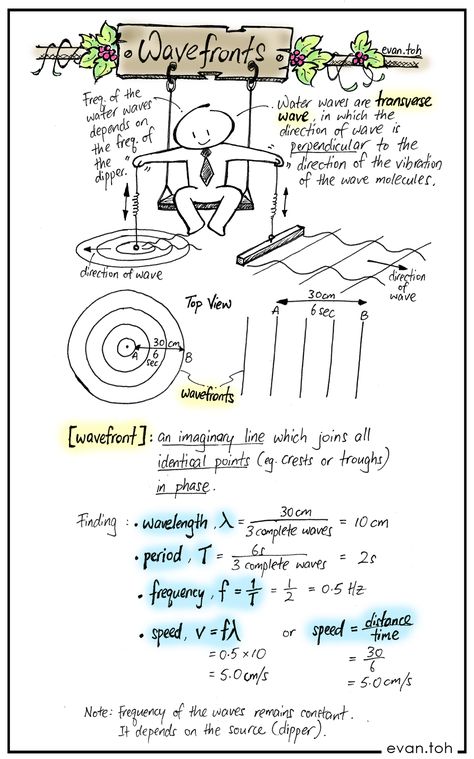 Wavefronts
evan.toh
Freq. of the
water waves
depends on
the freq. of
the
dipper.
Water waves are transverse
wave, in which the
direction of wave is
perpendicular to the
direction of the vibration
of the wave molecules.
direction of wave
direction
of
wave
Top View
30 cm
A 6 B
sec
30cm
6 sec
A B
wavefronts
[wavefront] : an imaginary line which joins all
identical points (eg. crests or troughs)
in phase.
Finding : • wavelength, λ = 30cm / 3 complete waves = 10 cm
• period, T = 6s / 3 complete waves = 2s
• frequency, f = 1/T = 1/2 = 0.5 Hz
• speed, v = fλ or speed = distance / time
= 0.5 × 10 = 30 / 6
= 5.0 cm/s = 5.0 cm/s
Note: Frequency of the waves remains constant.
It depends on the source (dipper).
evan.toh